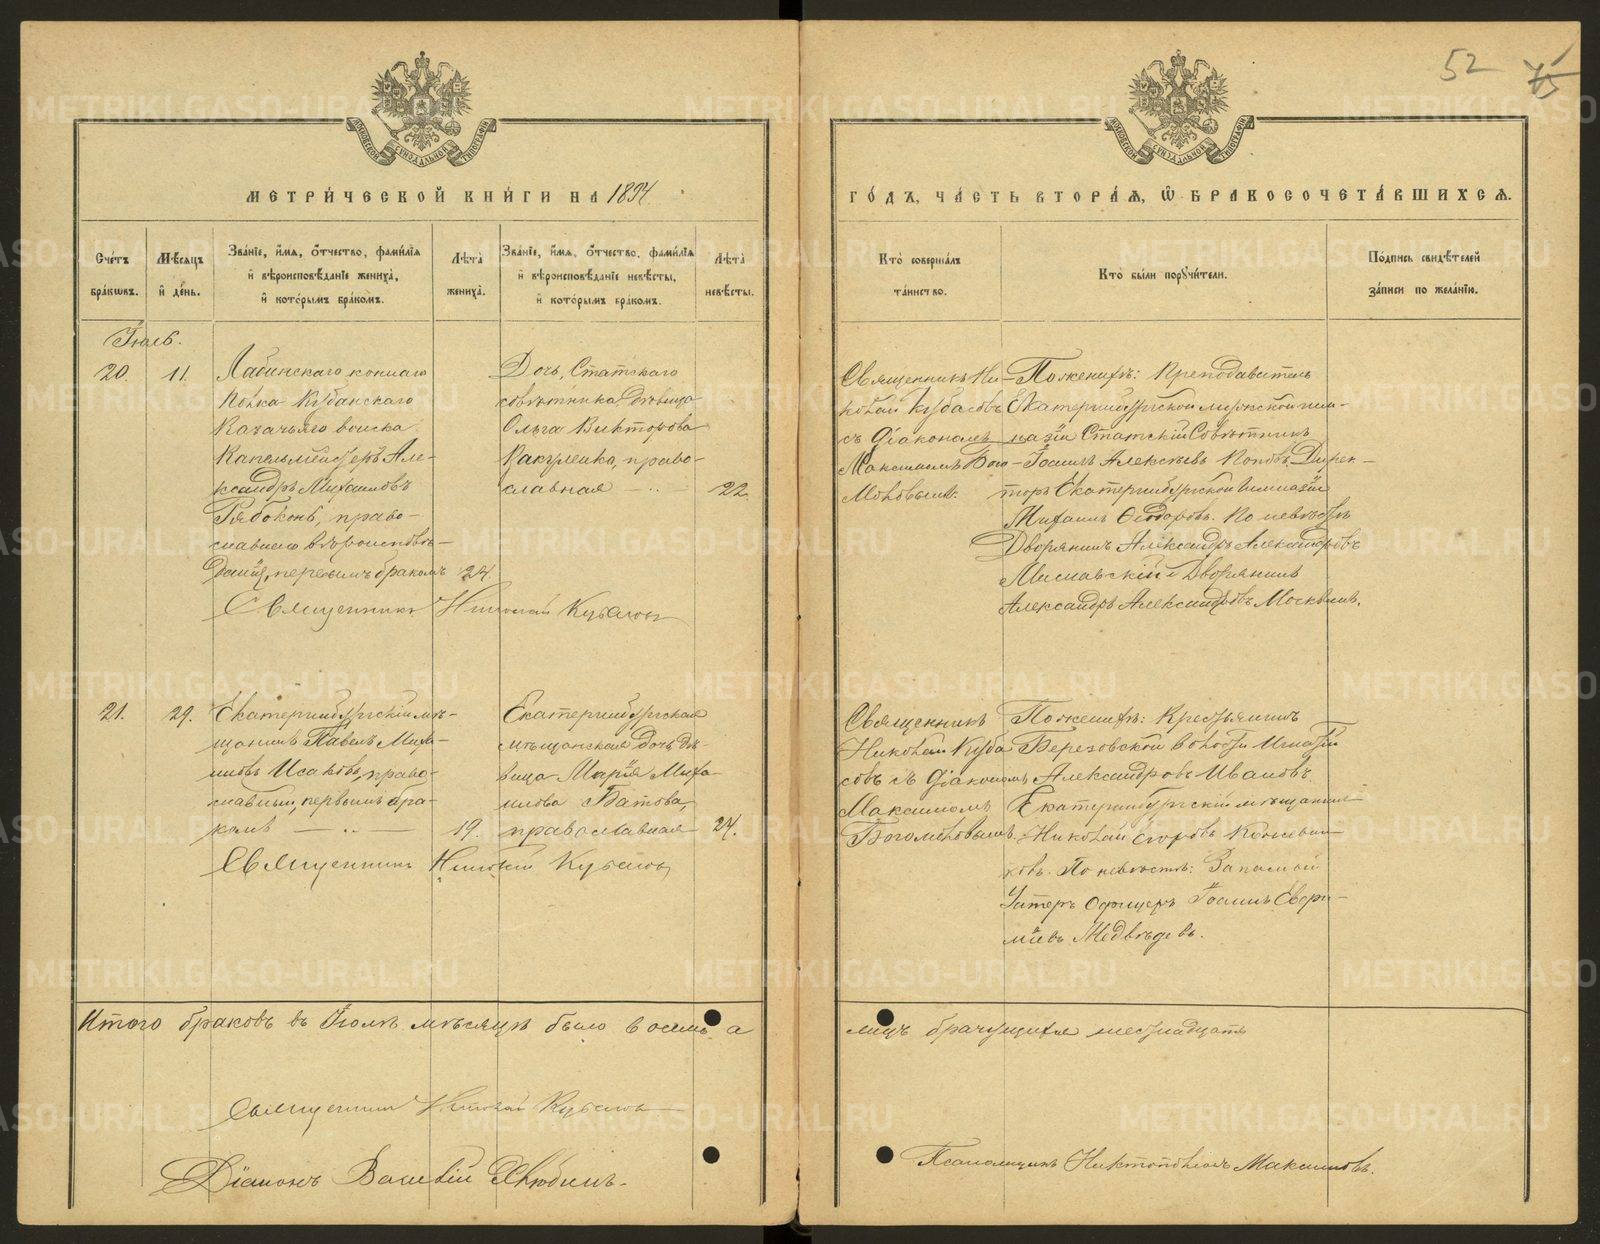 52 75
МЕТРИ́ЧЕСКОЙ КНИ́ГИ НА 1894
ГО́ДЪ, ЧА́СТЬ ВТОРА́Я, Ѡ БРАКОСОЧЕТА́ВШИХСЯ.
Сче́тъ бра́кѡвъ.
Мѣ́сяцъ и҆ де́нь.
Зва́нїе, и҆́мя, ѻ҆́тчество, фами́лїя и҆ вѣроисповѣ́данїе жениха̀, и҆ кото́рымъ бра́комъ.
Лѣ́та жениха̀.
Зва́нїе, и҆́мя, ѻ҆́тчество, фами́лїя и҆ вѣроисповѣ́данїе невѣ́сты, и҆ кото́рымъ бра́комъ.
Лѣ́та невѣ́сты.
Кто̀ соверша́лъ та́инство.
Кто̀ бы́ли порꙋчи́тели.
По́дпись свидѣ́телей за́писи по жела́нїю.
Іюль.
20.
11.
Лабинскаго коннаго
полка Кубанскаго
Казачьяго войска
Капельмейстеръ Але-
ксандръ Михаиловъ
Рябоконь, право-
славнаго вѣроисповѣ-
данія, первымъ бракомъ
24.
Дочь Статскаго
совѣтника дѣвица
Ольга Викторова
Какуленко, право-
славная
22.
Священникъ Ни-
колай Кубасовъ
съ діакономъ
Максимомъ Бого-
моловымъ.
По женихѣ: Преподаватель
Екатеринбургской мужской гим-
назіи Статскій Совѣтникъ
Іоаннъ Алексѣевъ Поповъ, Дирек-
торъ Екатеринбургской гимназіи
Михаилъ Ѳеодоровъ. По невѣстѣ
Дворянинъ Александръ Александровъ
Миславскій и Дворянинъ
Александръ Александровъ Москвинъ.
Священникъ Николай Кубасовъ
21.
29.
Екатеринбургскій мѣ-
щанинъ Павелъ Миха-
иловъ Исаковъ, право-
славный, первымъ бра-
комъ
19.
Екатеринбургская
мѣщанская дочь дѣ-
вица Марія Миха-
илова Батова,
православная
24.
Священникъ
Николай Куба
совъ съ діакономъ
Максимомъ
Богомоловымъ.
По женихѣ: Крестьянинъ
Березовской волости Игнатій
Александровъ Ивановъ,
Екатеринбургскій мѣщанинъ
Николай Егоровъ
ковъ. По невѣстѣ: Запасный
Унтеръ Офицеръ Іоаннъ Евфи-
міевъ Медвѣдевъ.
Священникъ Николай Кубасовъ
Итого браковъ въ Іюлѣ мѣсяцѣ было восемь а
лицъ брачущихся шестнадцать
Священникъ Николай Кубасовъ
Діаконъ Василій
Псаломщикъ Максимовъ.
METRIKI.GASO-URAL.RU